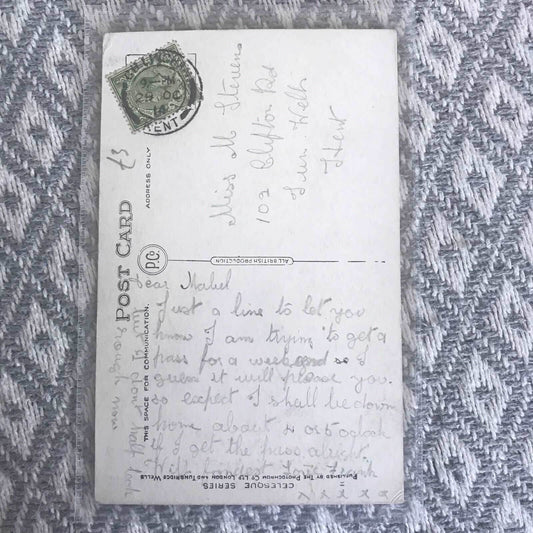 POST CARD
ADDRESS ONLY
THIS SPACE FOR COMMUNICATION.
P.Co
ALL BRITISH PRODUCTION
KENT
£3
Miss M Stevens
102 Clifton Rd
Tun Wells
Kent
Dear Mabel
Just a line to let you
know I am trying to get a
pass for a weekend so I
guess it will please you.
so expect I shall be down
home about 4 or 5 oclock
if I get the pass alright.
With fondest love Frank
x x x x x
but I dont half look
rough now
CELESQUE SERIES
PUBLISHED BY THE PHOTOCHROM CO LTD LONDON AND TUNBRIDGE WELLS